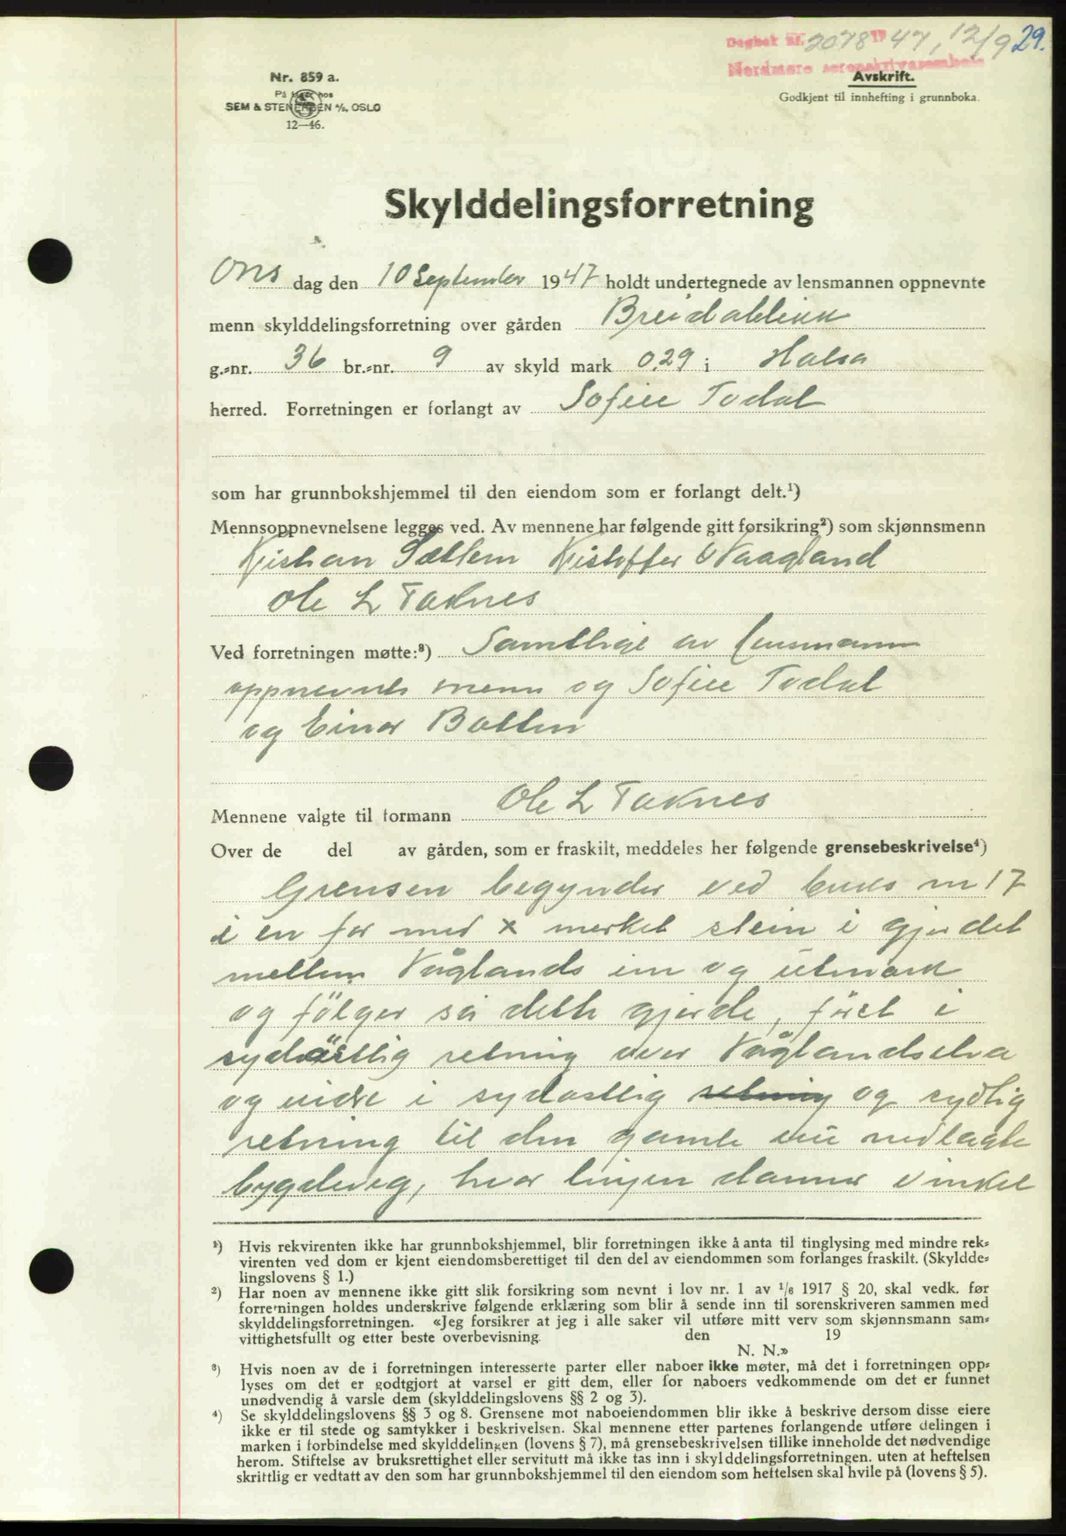 Dagbok nr. 2078 1947, 12/9 29.
Nordmøre sorenskriverembede
Avskrift.
Godkjent til innhefting i grunnboka.
Nr. 859 a.
På lager hos
SEM & STENERSEN A/S, OSLO
12—46.
Skylddelingsforretning
Ons dag den 10 September 1947 holdt undertegnede av lensmannen oppnevnte
menn skylddelingsforretning over gården Breidablikk
g.-nr. 36 br.-nr. 9 av skyld mark 0,29 i Halsa
herred. Forretningen er forlangt av Sofie Todal
som har grunnbokshjemmel til den eiendom som er forlangt delt.¹)
Mennsoppnevnelsene legges ved. Av mennene har følgende gitt forsikring²) som skjønnsmenn
Kristian Sættem Kristoffer Vaagland
Ole L Taknes
Ved forretningen møtte:³) Samtlige av lensmann
oppnevnte menn og Sofie Todal
og Einar Botten
Mennene valgte til formann Ole L Taknes
Over de del av gården, som er fraskilt, meddeles her følgende grensebeskrivelse⁴)
Grensen begynder ved bruks nr 17
i en for med x merket stein i gjerdet
mellem Våglands inn og utmark
og följer så dette gjerde, först i
sydöstlig retning over Våglandselva
og vidre i sydostlig retning og sydlig
retning til den gamle nu nedlagte
bygdeveg, hvor linjen danner vinkel
¹) Hvis rekvirenten ikke har grunnbokshjemmel, blir forretningen ikke å anta til tinglysing med mindre rek-
virenten ved dom er kjent eiendomsberettiget til den del av eiendommen som forlanges fraskilt. (Skyldde-
lingslovens § 1.)
²) Har noen av mennene ikke gitt slik forsikring som nevnt i lov nr. 1 av 1/6 1917 § 20, skal vedk. før
forretningen holdes underskrive følgende erklæring som blir å sende inn til sorenskriveren sammen med
skylddelingsforretningen. «Jeg forsikrer at jeg i alle saker vil utføre mitt verv som skjønnsmann sam-
vittighetsfullt og etter beste overbevisning den 19
N. N.»
³) Hvis noen av de i forretningen interesserte parter eller naboer ikke møter, må det i forretningen opp-
lyses om det er godtgjort at varsel er gitt dem, eller for naboers vedkommende om det er funnet
unødvendig å varsle dem (skylddelingslovens §§ 2 og 3).
⁴) Se skylddelingslovens §§ 3 og 8. Grensene mot naboeiendommen blir ikke å beskrive dersom disse eiere
ikke er til stede og samtykker i beskrivelsen. Skal mennene etter partenes forlangende utføre delingen i
marken i forbindelse med skylddelingen (lovens § 7), må grensebeskrivelsen tillike inneholde det nødvendige
herom. Stiftelse av bruksrettighet eller servitutt må ikke tas inn i skylddelingsforretningen. uten at heftelsen
skriftlig er vedtatt av den som har grunnbokshjemmel til den eiendom som heftelsen skal hvile på (lovens § 5).